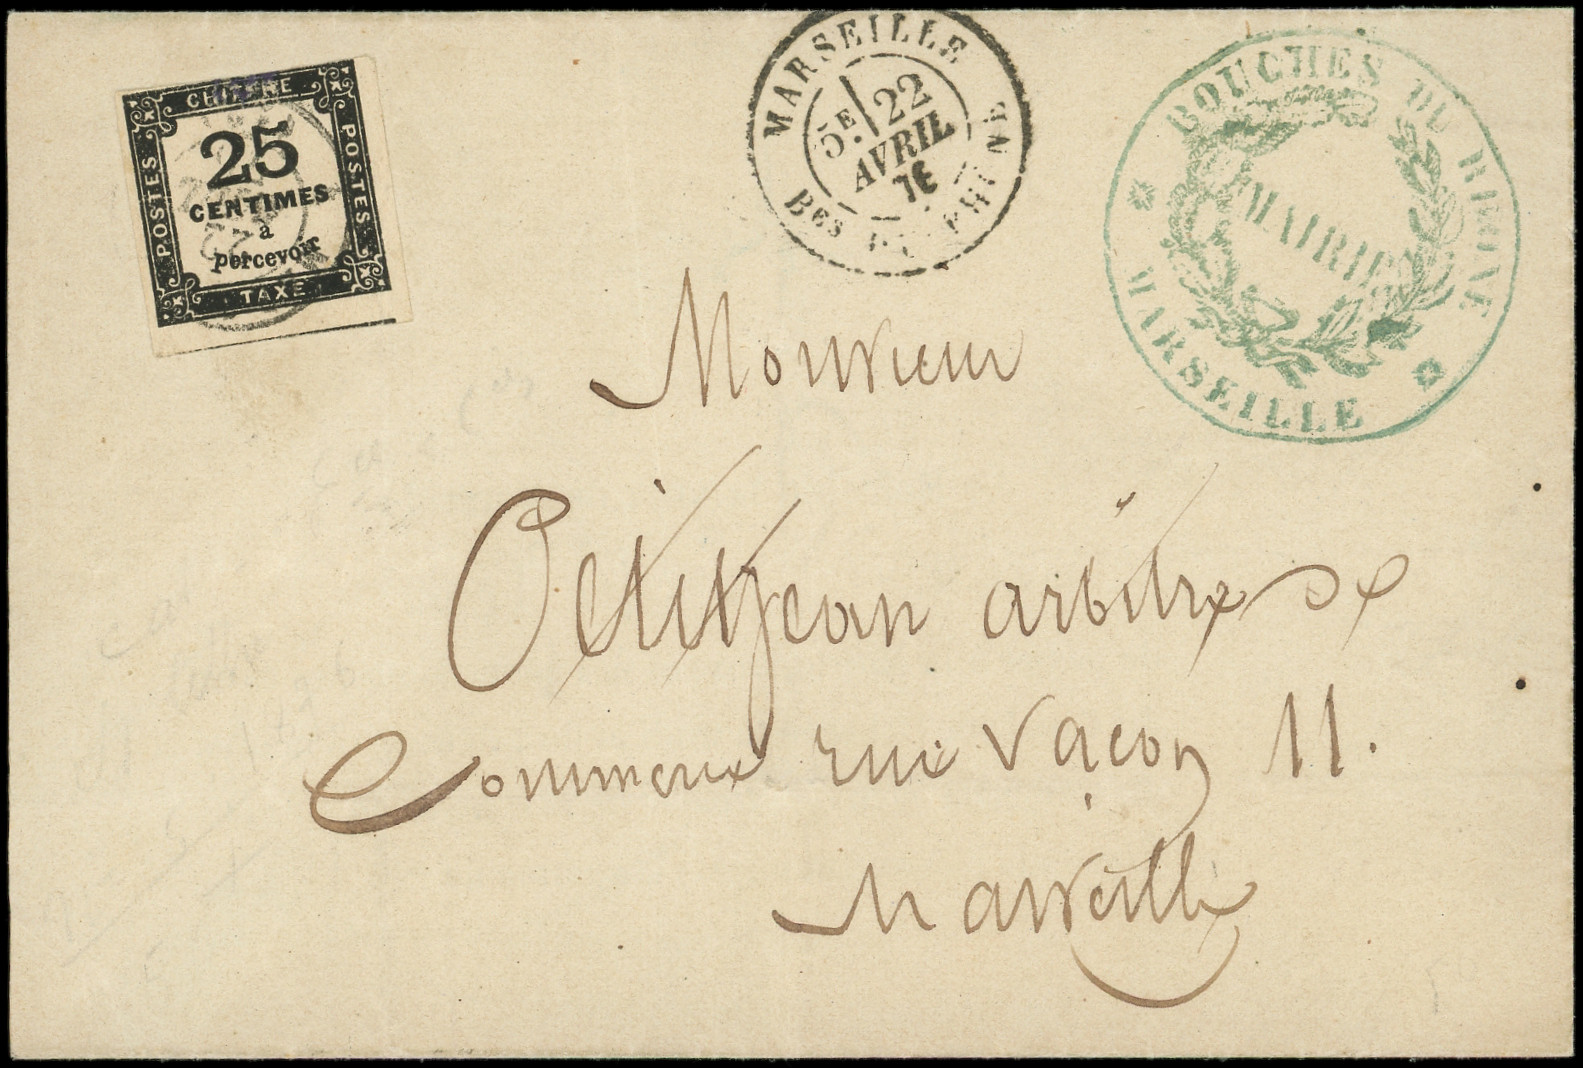 CHIFFRE
POSTES
25
CENTIMES
à
percevoir
POSTES
TAXE
MARSEILLE
5E 22
AVRIL
76
Bes DU RHÔNE
BOUCHES DU RHÔNE
MAIRIE
MARSEILLE
Monsieur
Petitjean arbitre de
Commerce rue Vacon 11.
Marseille